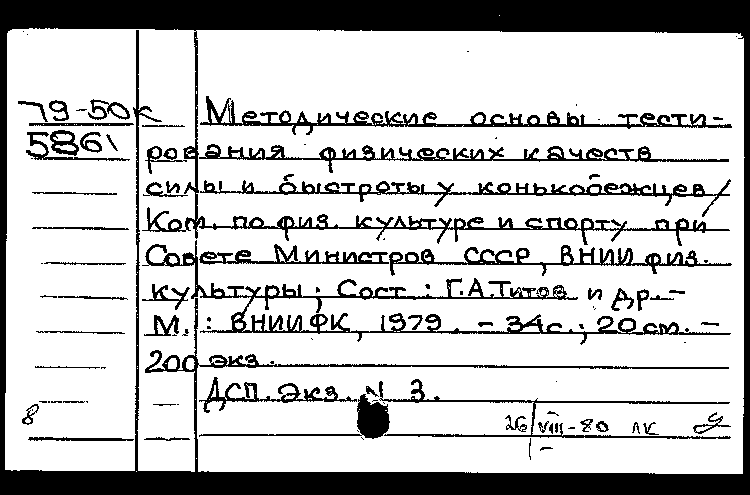 79-50К Методические основы тести-
5861 рования физических качеств
силы и быстроты у конькобежцев/
Ком. по физ. культуре и спорту при
Совете Министров СССР, ВНИИ физ.
культуры; Сост.: Г.А.Титов и др. -
М.: ВНИИФК, 1979. - 34с.; 20см. -
200 экз.
ДСП. Экз. N 3.
8 26/VIII-80 ЛК